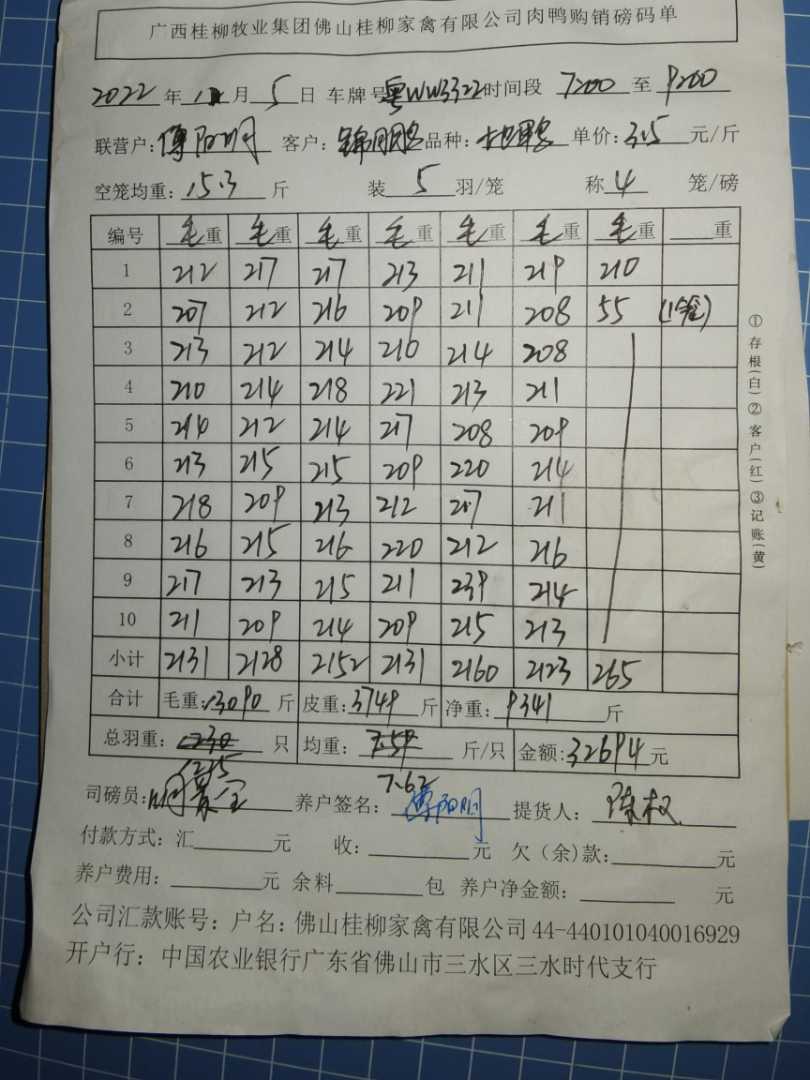 广西桂柳牧业集团佛山桂柳家禽有限公司肉鸭购销磅码单
2022 年 月 5 日 车牌号 粤WW3322 时间段 7200 至 9200
联营户: 傅阳明 客户: 锦鹏 品种: 土鸭 单价: 3.5 元/斤
空笼均重: 15.3 斤 装 5 羽/笼 称 4 笼/磅
编号 毛重 毛重 毛重 毛重 毛重 毛重 毛重 重
1 212 217 217 213 211 219 210
2 207 212 216 209 211 208 55 (1笼)
3 213 212 214 210 214 208
4 210 214 218 221 213 211
5 214 212 214 217 208 209
6 213 215 215 209 220 214
7 218 209 213 212 217 211
8 216 215 216 220 212 216
9 217 213 215 211 239 214
10 211 209 214 209 215 213
小计 2131 2128 2152 2131 2160 2123 265
合计 毛重: 13090 斤 皮重: 3749 斤 净重: 9341 斤
总羽重: 1230 只 均重: 7.59 斤/只 金额: 32694 元
1225 7.62
司磅员: 养户签名: 傅阳明 提货人: 陈权
付款方式: 汇 元 收: 元 欠(余)款: 元
养户费用: 元 余料 包 养户净金额: 元
公司汇款账号: 户名: 佛山桂柳家禽有限公司 44-440101040016929
开户行: 中国农业银行广东省佛山市三水区三水时代支行
①存根(白)②客户(红)③记账(黄)